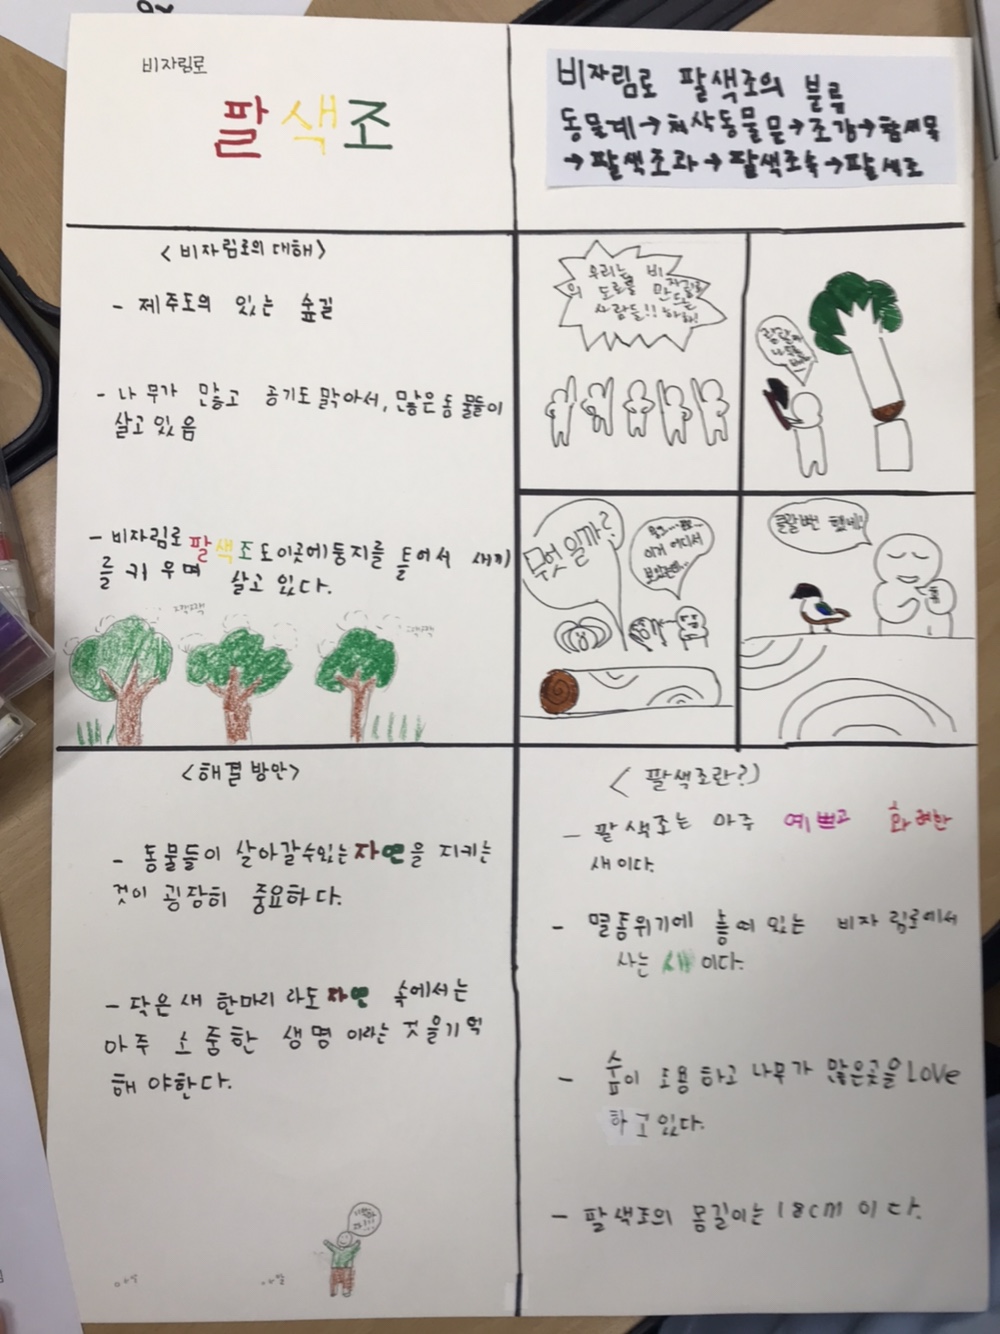 비자림로
팔색조
비자림로 팔색조의 분류
동물계→척삭동물문→조강→참새목
→팔색조과→팔색조속→팔색조
<비자림로의 대해>
- 제주도의 있는 숲길
- 나무가 많고 공기도 맑아서, 많은 동물들이
살고 있음
- 비자림로 팔색조도 이곳에 둥지를 틀어서 새끼
를 키우며 살고 있다.
우리는 비
자림로
의 도로를 만드는
사람들!! 하하!
무엇일까?
이거 어디서
보았는데...
큰일날뻔 했네!
<해결 방안>
- 동물들이 살아갈수있는 자연을 지키는
것이 굉장히 중요하다.
- 작은 새 한마리 라도 자연 속에서는
아주 소중한 생명 이라는 것을 기억
해야한다.
<팔색조란?>
- 팔색조는 아주 예쁘고 화려한
새이다.
- 멸종위기에 놓여 있는 비자림로에서
사는 새이다.
- 숲이 조용하고 나무가 많은곳을 Love
하고있다.
- 팔색조의 몸길이는 18cm 이다.